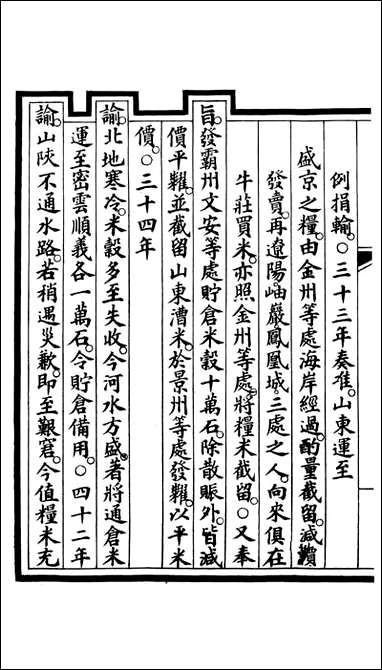 例捐輸。○三十三年奏准。山東運至
盛京之糧。由金州等處海岸經過。酌量截留。減價
發賣。再遼陽。岫巖。鳳凰城。三處之人。向來俱在
牛莊買米。亦照金州等處。將糧米截留。○又奉
旨。發霸州文安等處貯倉米穀十萬石。除散賑外。皆減
價平糶。並截留山東漕米。於景州等處發糶。以平米
價。○三十四年
諭。北地寒冷。米穀多至失收。今河水方盛。著將通倉米
運至密雲順義各一萬石。令貯倉備用。○四十二年
諭。山陝不通水路。若稍遇災歉。即至艱窘。今值糧米充